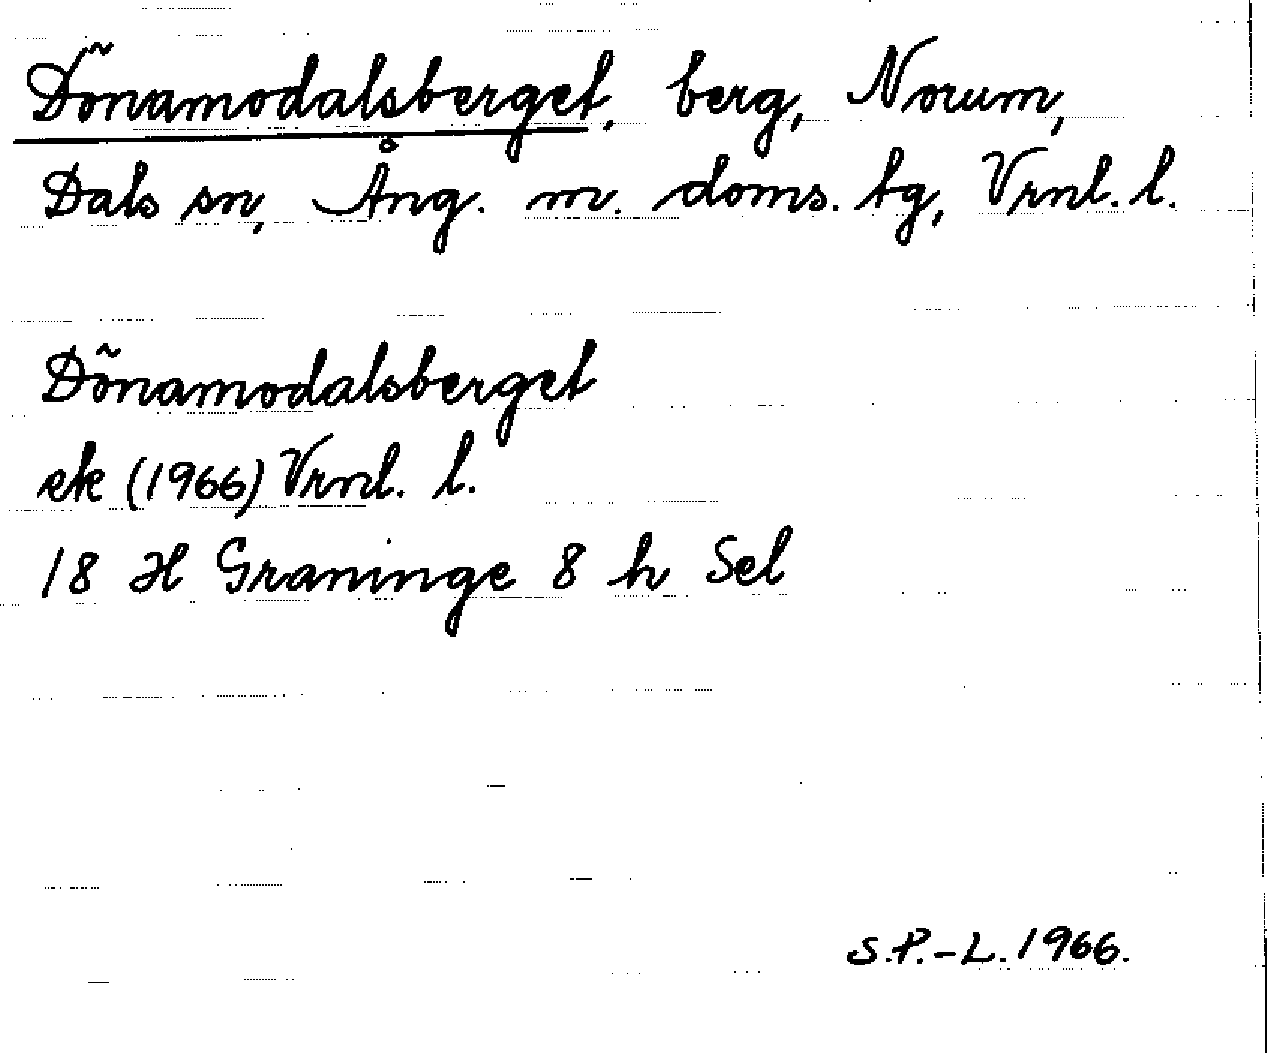 Dönamodalsberget, berg, Norum,
Dals sn, Ång. m. doms. tg, Vrnl. l.
Dönamodalsberget
ek (1966) Vrnl. l.
18 H Graninge 8 h Sel
S.P.-L. 1966.